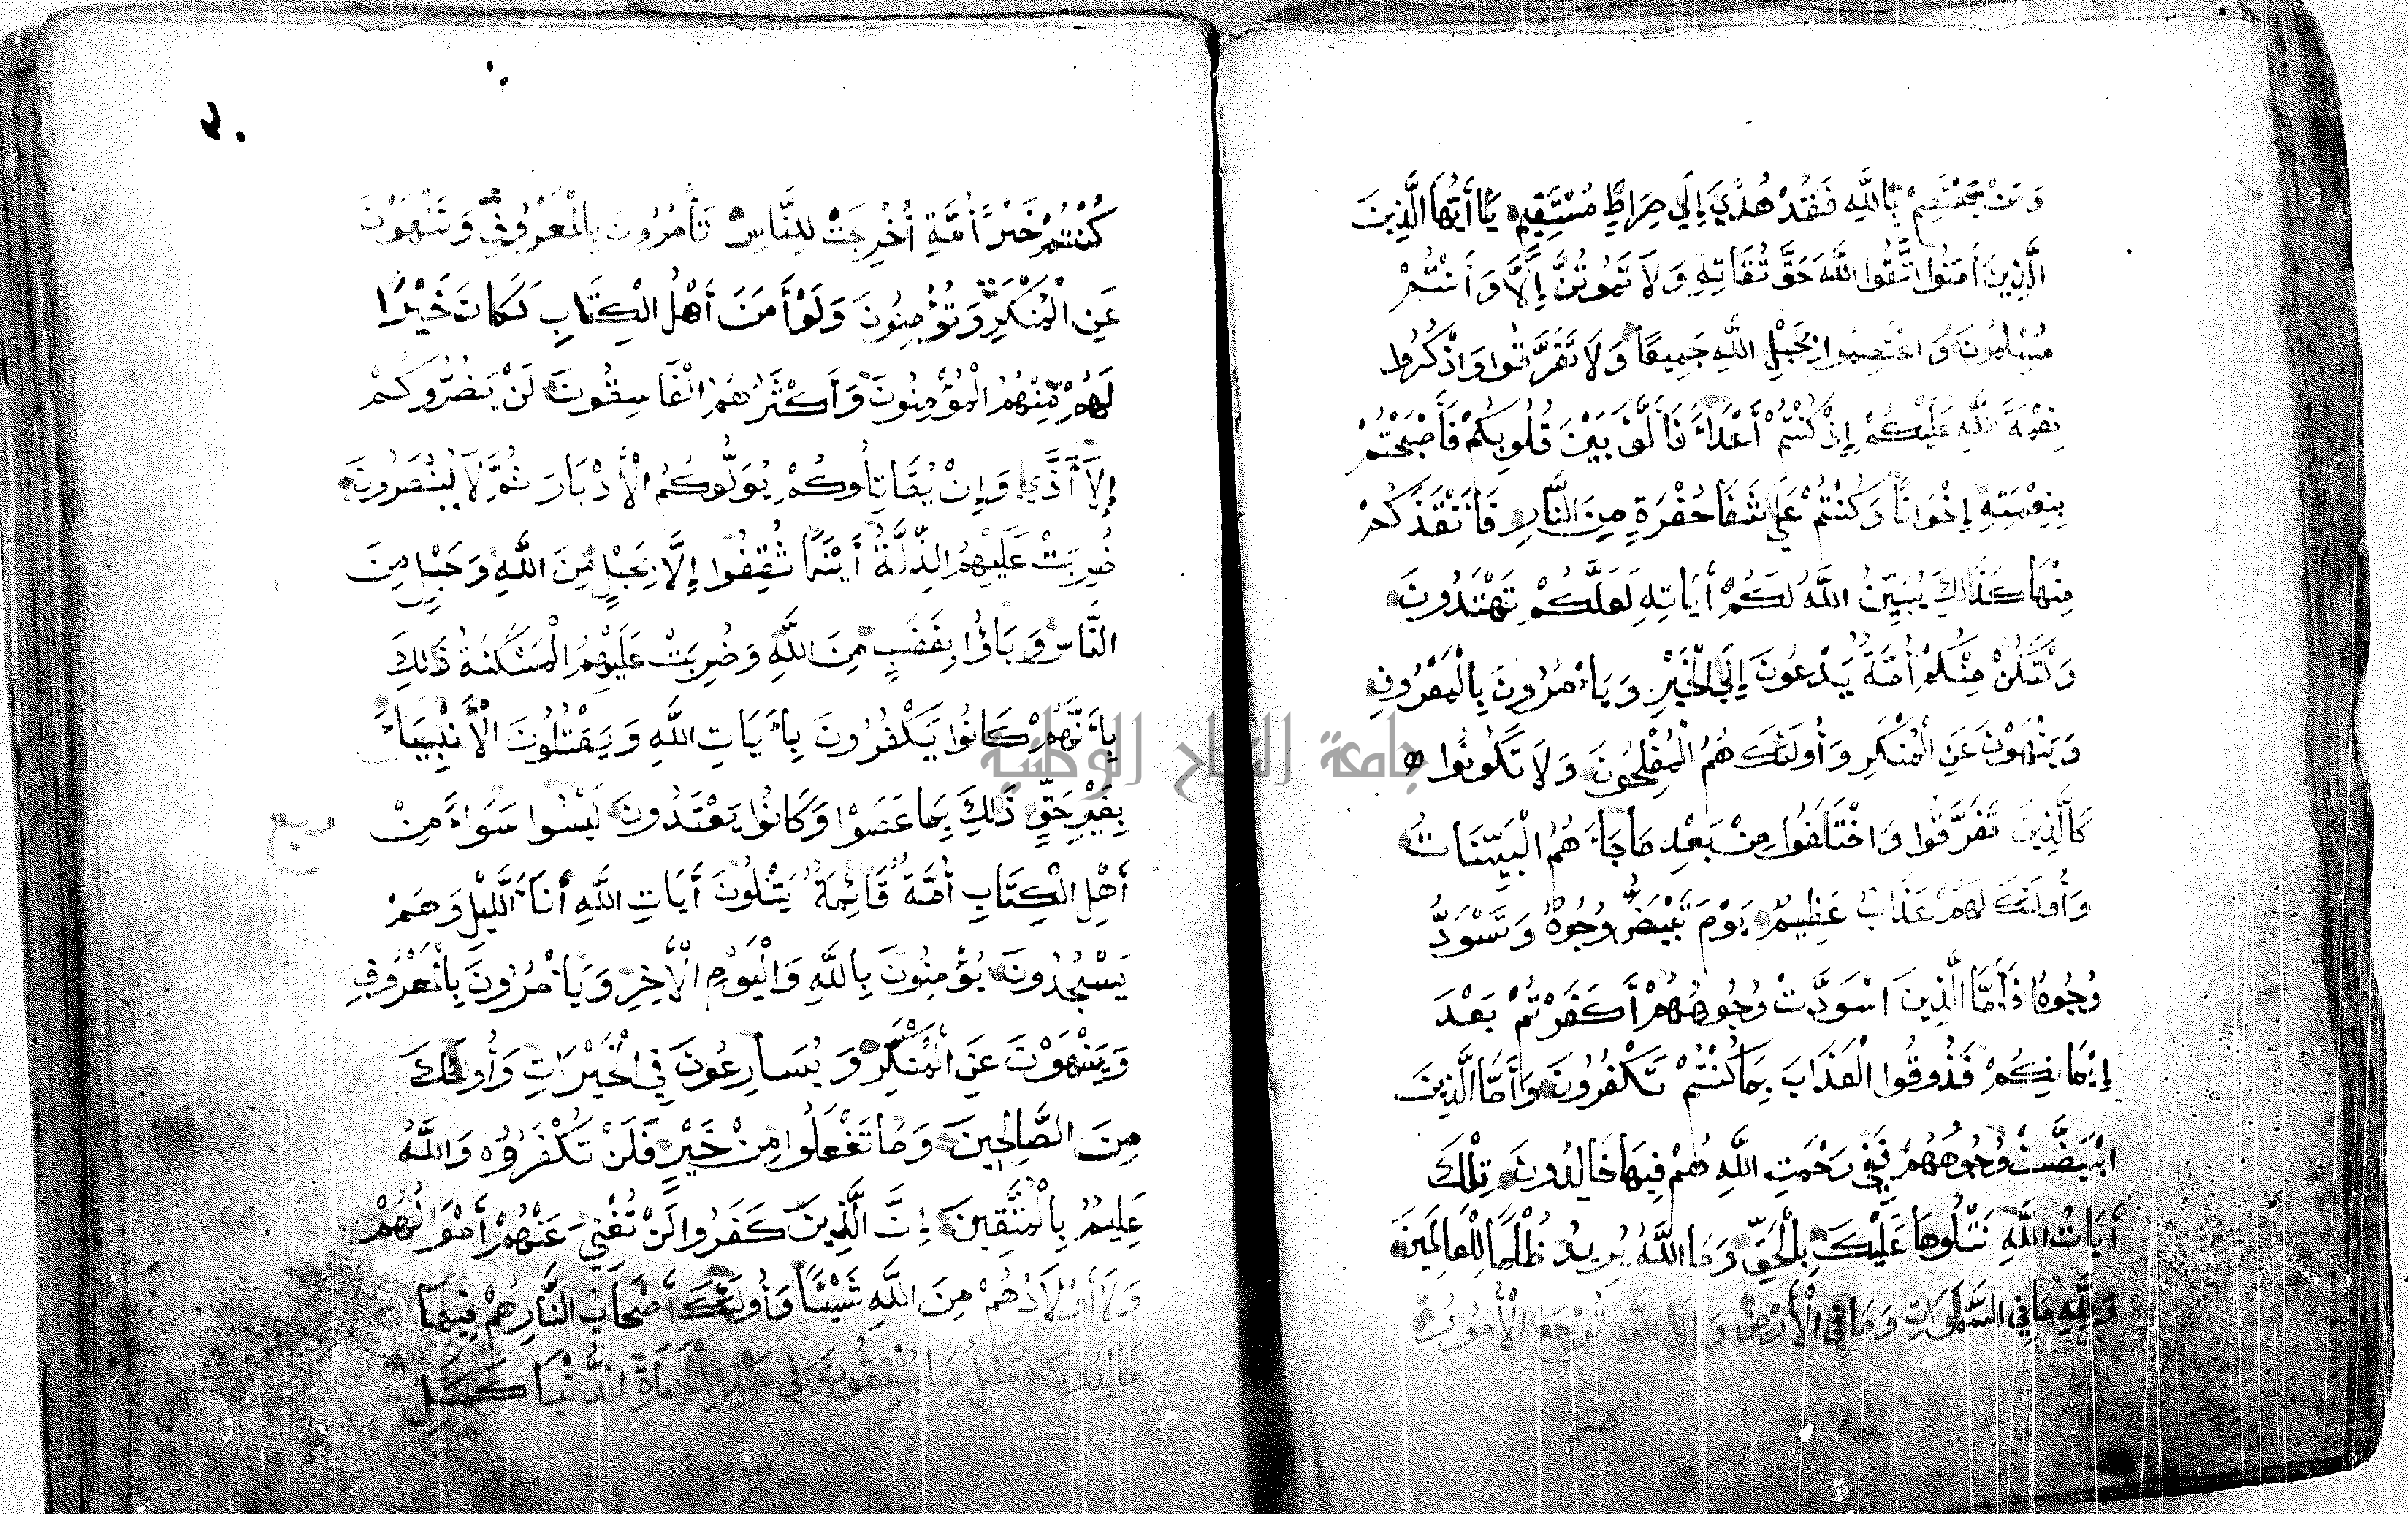 وَمَنْ يَعْتَصِمْ بِاللَّهِ فَقَدْ هُدِيَ إِلَى صِرَاطٍ مُسْتَقِيمٍ يَا أَيُّهَا الَّذِينَ
الَّذِينَ أَمَنُوا اتَّقُوا اللَّهَ حَقَّ تُقَاتِهِ وَلَا تَمُوتُنَّ إِلَّا وَأَنْتُمْ
مُسْلِمُونَ وَاعْتَصِمُوا بِحَبْلِ اللَّهِ جَمِيعًا وَلَا تَفَرَّقُوا وَاذْكُرُوا
نِعْمَةَ اللَّهِ عَلَيْكُمْ إِذْ كُنْتُمْ أَعْدَاءً فَأَلَّفَ بَيْنَ قُلُوبِكُمْ فَأَصْبَحْتُمْ
بِنِعْمَتِهِ إِخْوَانًا وَكُنْتُمْ عَلَى شَفَا حُفْرَةٍ مِنَ النَّارِ فَأَنْقَذَكُمْ
مِنْهَا كَذَالِكَ يُبَيِّنُ اللَّهُ لَكُمْ أَيَاتِهِ لَعَلَّكُمْ تَهْتَدُونَ
وَلْتَكُنْ مِنْكُمْ أُمَّةٌ يَدْعُونَ إِلَى الْخَيْرِ وَيَأْمُرُونَ بِالْمَعْرُوفِ
وَيَنْهَوْنَ عَنِ الْمُنْكَرِ وَأُولَئِكَ هُمُ الْمُفْلِحُونَ وَلَا تَكُونُوا
كَالَّذِينَ تَفَرَّقُوا وَاخْتَلَفُوا مِنْ بَعْدِ مَا جَاءَهُمُ الْبَيِّنَاتُ
وَأُولَئِكَ لَهُمْ عَذَابٌ عَظِيمٌ يَوْمَ تَبْيَضُّ وُجُوهٌ وَتَسْوَدُّ
وُجُوهٌ فَأَمَّا الَّذِينَ اسْوَدَّتْ وُجُوهُهُمْ أَكَفَرْتُمْ بَعْدَ
إِيمَانِكُمْ فَذُوقُوا الْعَذَابَ بِمَا كُنْتُمْ تَكْفُرُونَ وَأَمَّا الَّذِينَ
ابْيَضَّتْ وُجُوهُهُمْ فَفِي رَحْمَتِ اللَّهِ هُمْ فِيهَا خَالِدُونَ تِلْكَ
أَيَاتُ اللَّهِ نَتْلُوهَا عَلَيْكَ بِالْحَقِّ وَمَا اللَّهُ يُرِيدُ ظُلْمًا لِلْعَالَمِينَ
وَلِلَّهِ مَا فِي السَّمَوَاتِ وَمَا فِي الْأَرْضِ وَإِلَى اللَّهِ تُرْجَعُ الْأُمُورُ
كنتم
كُنْتُمْ خَيْرَ أُمَّةٍ أُخْرِجَتْ لِلنَّاسِ تَأْمُرُونَ بِالْمَعْرُوفِ وَتَنْهَوْنَ
عَنِ الْمُنْكَرِ وَتُؤْمِنُونَ وَلَوْ أَمَنَ أَهْلُ الْكِتَابِ لَكَانَ خَيْرًا
لَهُمْ مِنْهُمُ الْمُؤْمِنُونَ وَأَكْثَرُهُمُ الْفَاسِقُونَ لَنْ يَضُرُّوكُمْ
إِلَّا أَذًي وَإِنْ يُقَاتِلُوكُمْ يُوَلُّوكُمُ الْأَدْبَارَ ثُمَّ لَا يُنْصَرُونَ
ضُرِبَتْ عَلَيْهِمُ الذِّلَّةُ أَيْنَمَا ثُقِفُوا إِلَّا بِحَبْلٍ مِنَ اللَّهِ وَحَبْلٍ مِنَ
النَّاسِ وَبَاؤُا بِغَضَبٍ مِنَ اللَّهِ وَضُرِبَتْ عَلَيْهِمُ الْمَسْكَنَةُ ذَلِكَ
بِأَنَّهُمْ كَانُوا يَكْفُرُونَ بِأَيَاتِ اللَّهِ وَيَقْتُلُونَ الْأَنْبِيَاءَ
بِغَيْرِ حَقٍّ ذَلِكَ بِمَا عَصَوْا وَكَانُوا يَعْتَدُونَ لَيْسُوا سَوَاءً مِنْ
ربع
أَهْلِ الْكِتَابِ أُمَّةٌ قَائِمَةٌ يَتْلُونَ أَيَاتِ اللَّهِ أَنَاءَ اللَّيْلِ وَهُمْ
يَسْجُدُونَ يُؤْمِنُونَ بِاللَّهِ وَالْيَوْمِ الْأَخِرِ وَيَأْمُرُونَ بِالْمَعْرُوفِ
وَيَنْهَوْنَ عَنِ الْمُنْكَرِ وَيُسَارِعُونَ فِي الْخَيْرَاتِ وَأُولَئِكَ
مِنَ الصَّالِحِينَ وَمَا تَفْعَلُوا مِنْ خَيْرٍ فَلَنْ تُكْفَرُوهُ وَاللَّهُ
عَلِيمٌ بِالْمُتَّقِينَ إِنَّ الَّذِينَ كَفَرُوا لَنْ تُغْنِيَ عَنْهُمْ أَمْوَالُهُمْ
وَلَا أَوْلَادُهُمْ مِنَ اللَّهِ شَيْئًا وَأُولَئِكَ أَصْحَابُ النَّارِ هُمْ فِيهَا
خَالِدُونَ مَثَلُ مَا يُنْفِقُونَ فِي هَذِهِ الْحَيَاةِ الدُّنْيَا كَمَثَلِ
جامعة النجاح الوطنية